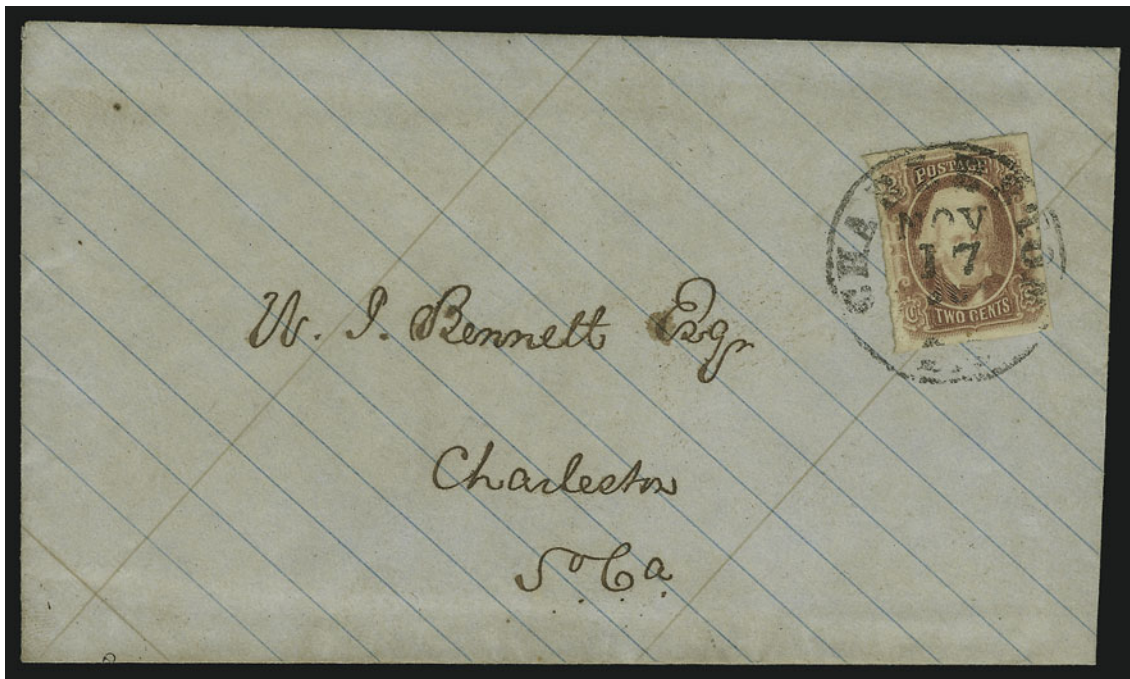 POSTAGE
CHARLESTON
NOV
17
TWO CENTS
W. J. Bennett Esqr
Charleston
So Ca.